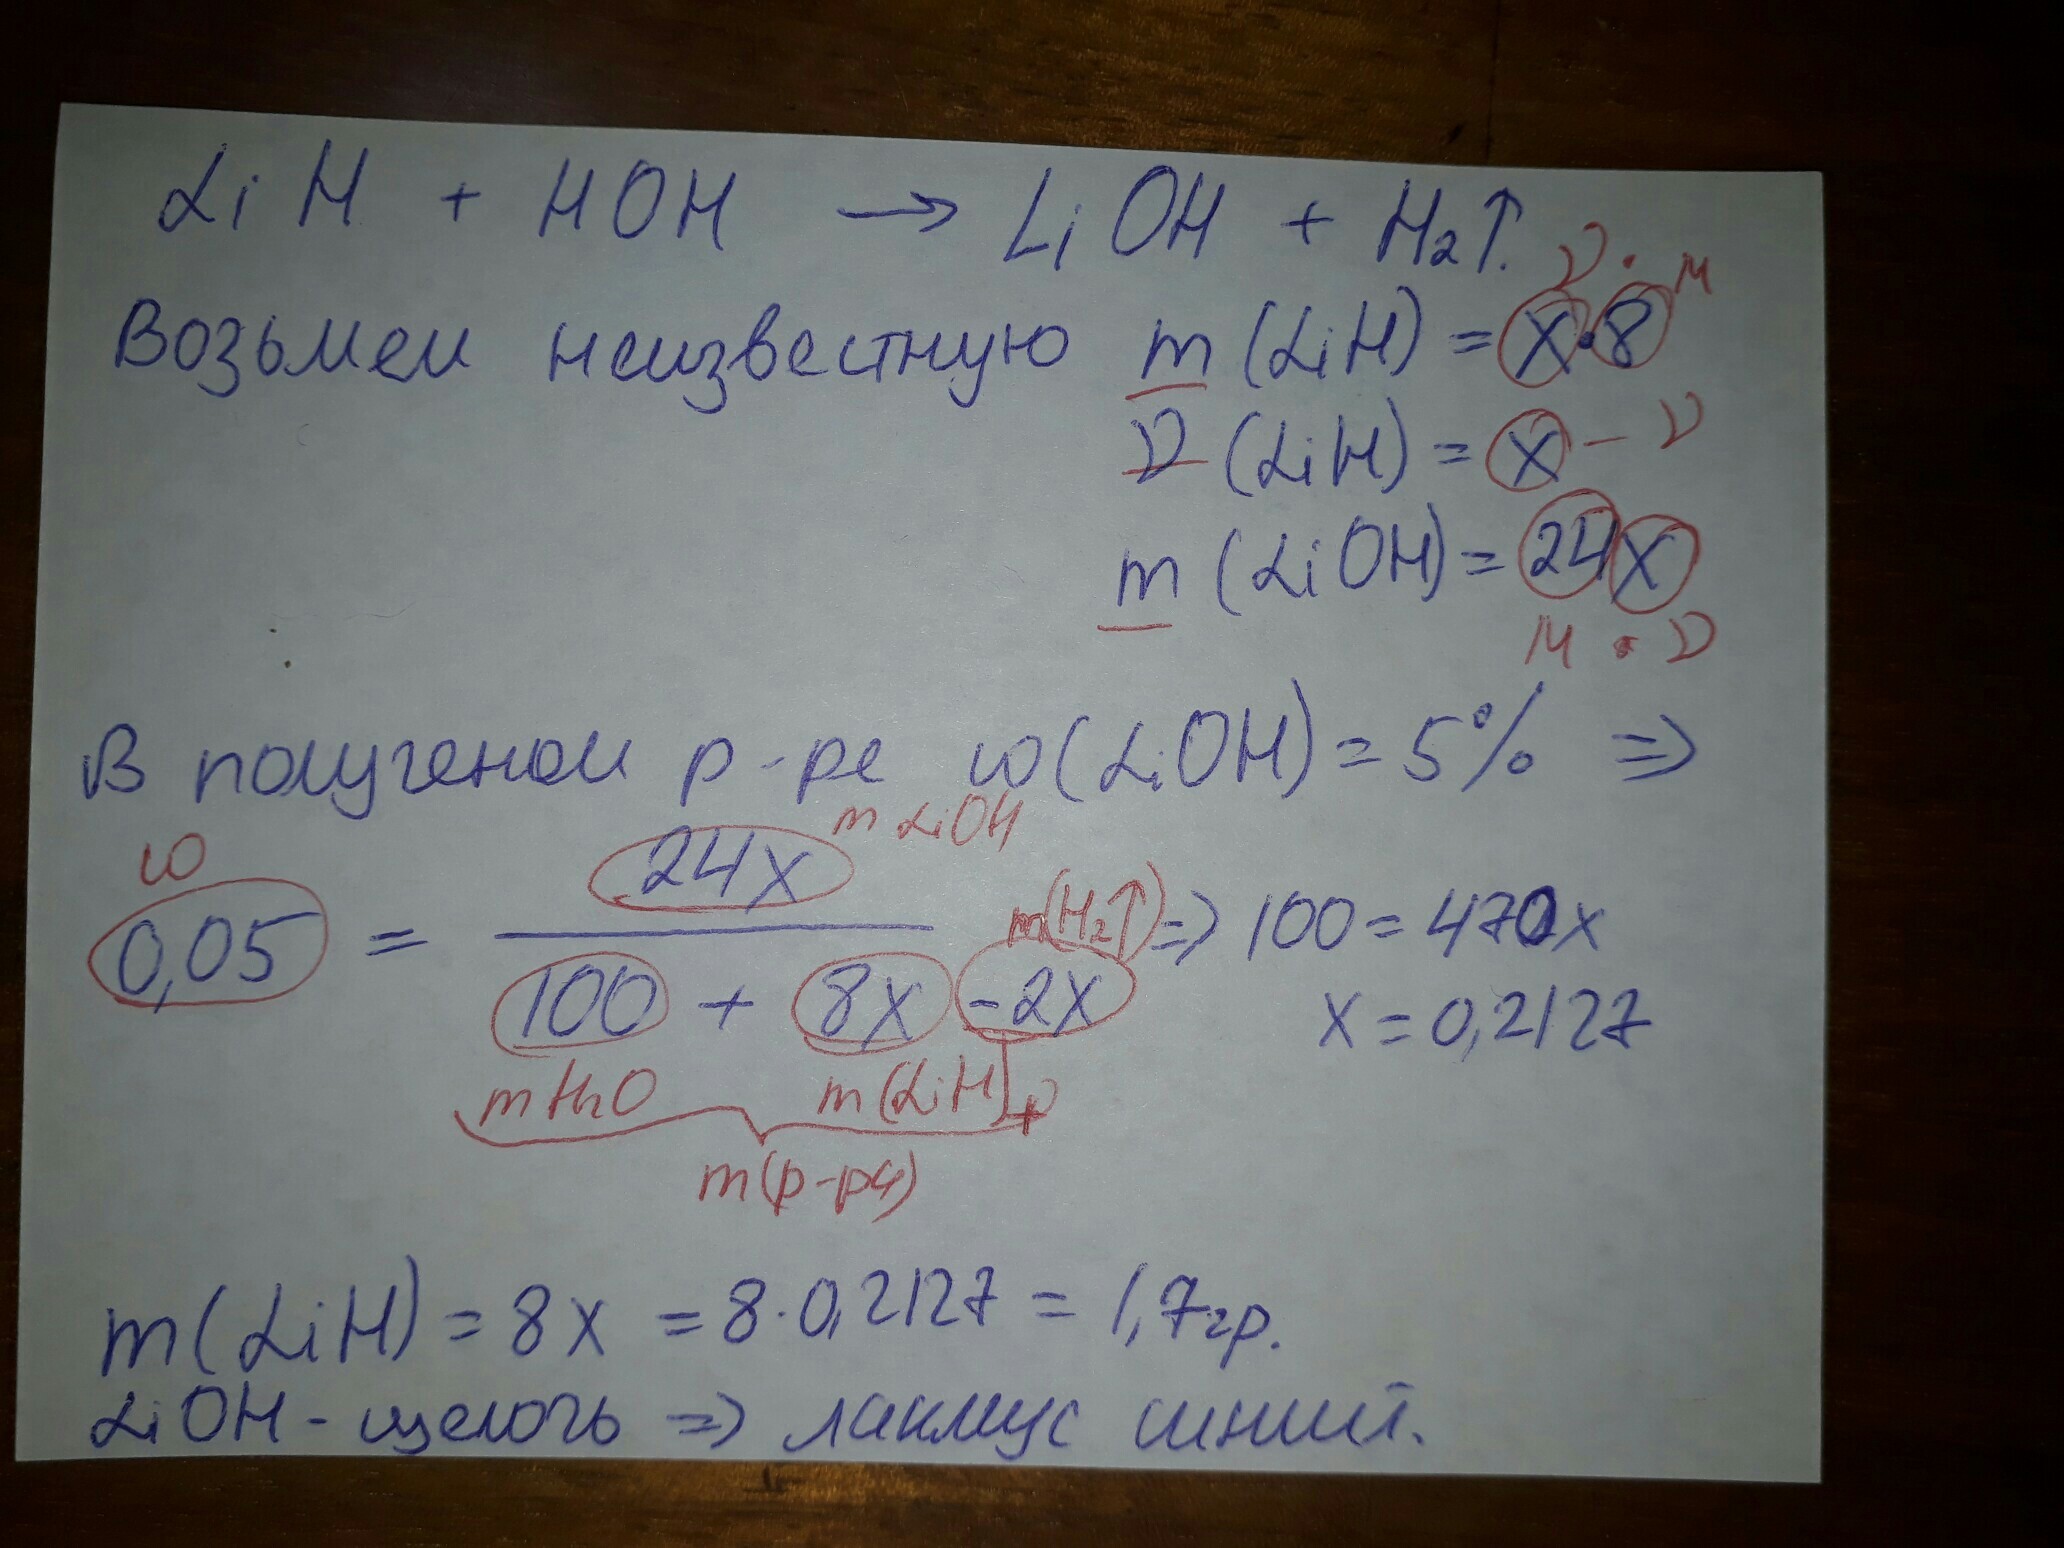 LiH + HOH → LiOH + H₂↑.
ν · M
Возьмем неизвестную m (LiH) = x·8
ν (LiH) = x – ν
m (LiOH) = 24x
M · ν
В полученом р-ре ω(LiOH) = 5% ⇒
ω
24x m LiOH
0,05 = m(H₂↑) ⇒ 100 = 470x
100 + 8x - 2x x = 0,2127
m H₂O m(LiH)
m(р-ра)
m(LiH) = 8x = 8·0,2127 = 1,7гр.
LiOH - щелочь ⇒ лакмус синий.